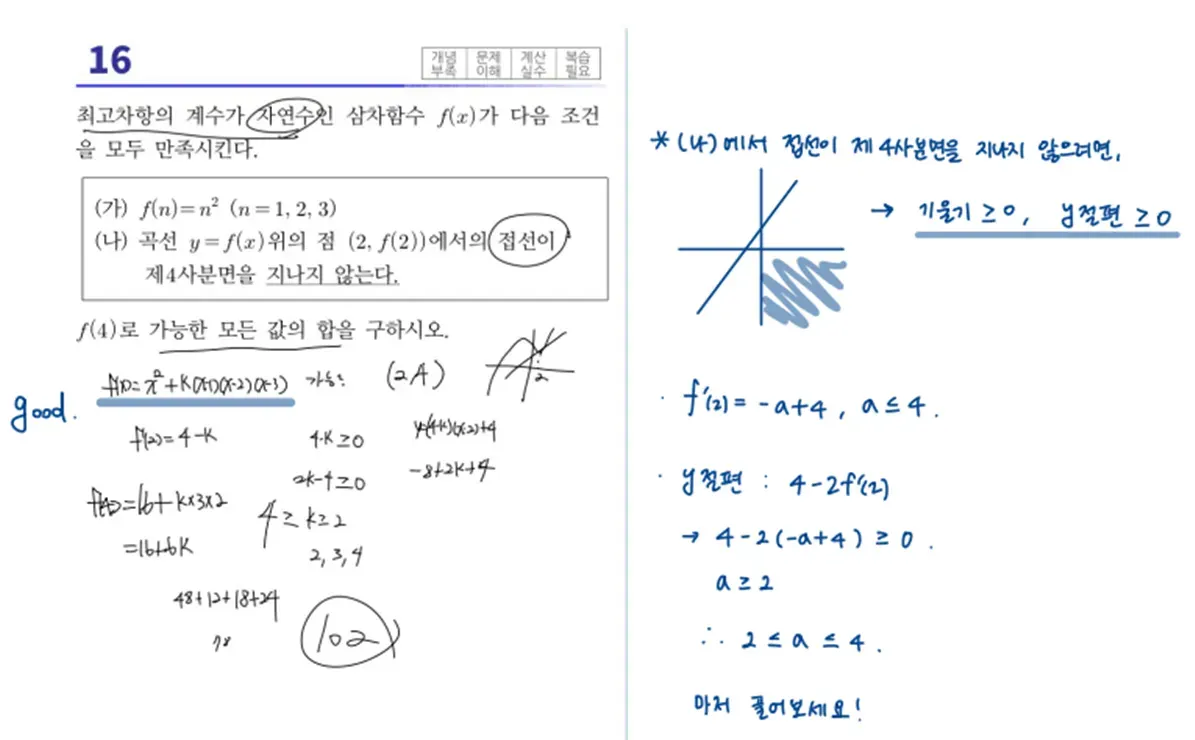 16
개념 부족 문제 이해 계산 실수 복습 필요
최고차항의 계수가 자연수인 삼차함수 f(x)가 다음 조건
을 모두 만족시킨다.
(가) f(n)=n² (n=1, 2, 3)
(나) 곡선 y=f(x)위의 점 (2, f(2))에서의 접선이
제4사분면을 지나지 않는다.
f(4)로 가능한 모든 값의 합을 구하시오.
good.
f(x)=x²+k(x-1)(x-2)(x-3)
(2,4)
f'(2)=4-k
4-k≥0
2k-4≥0
-8+2k+4
f(4)=16+k×3×2
=16+6k
4≥k≥2
2, 3, 4
48+12+18+24
78
102
* (나)에서 접선이 제4사분면을 지나지 않으려면,
→ 기울기 ≥0, y절편 ≥0
· f'(2) = -a+4, a≤4.
· y절편 : 4-2f'(2)
→ 4-2(-a+4) ≥ 0.
a≥2
∴ 2 ≤ a ≤ 4.
마저 풀어보세요!